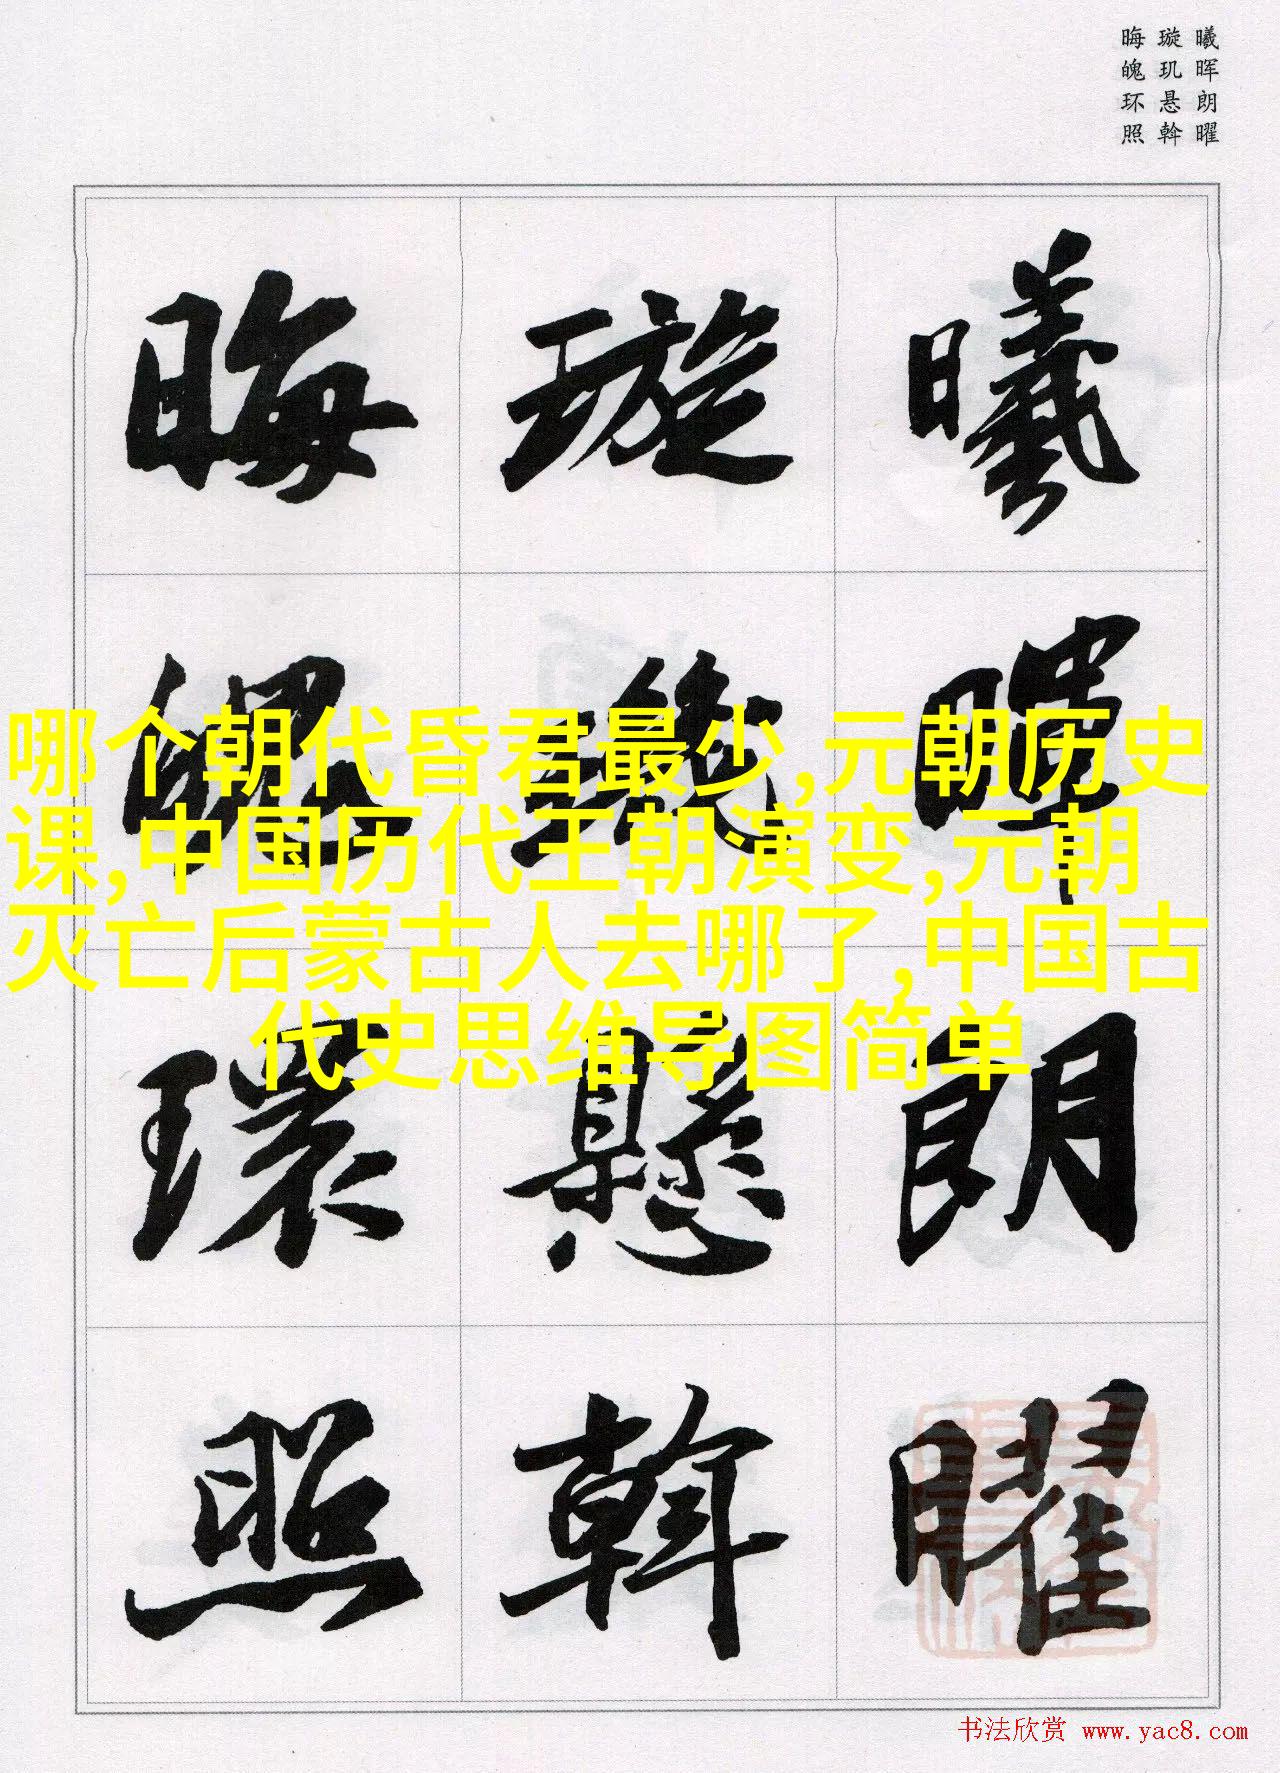 曦晖朗曜
璇玑悬斡
晦魄环照
曦晖朗曜
璇璣懸斡
晦魄環照
哪个朝代昏君最少,元朝历史
课,中国历代王朝演变,元朝
灭亡后蒙古人去哪了,中国古
代史思维导图简单
书法欣赏 www.yac8.com